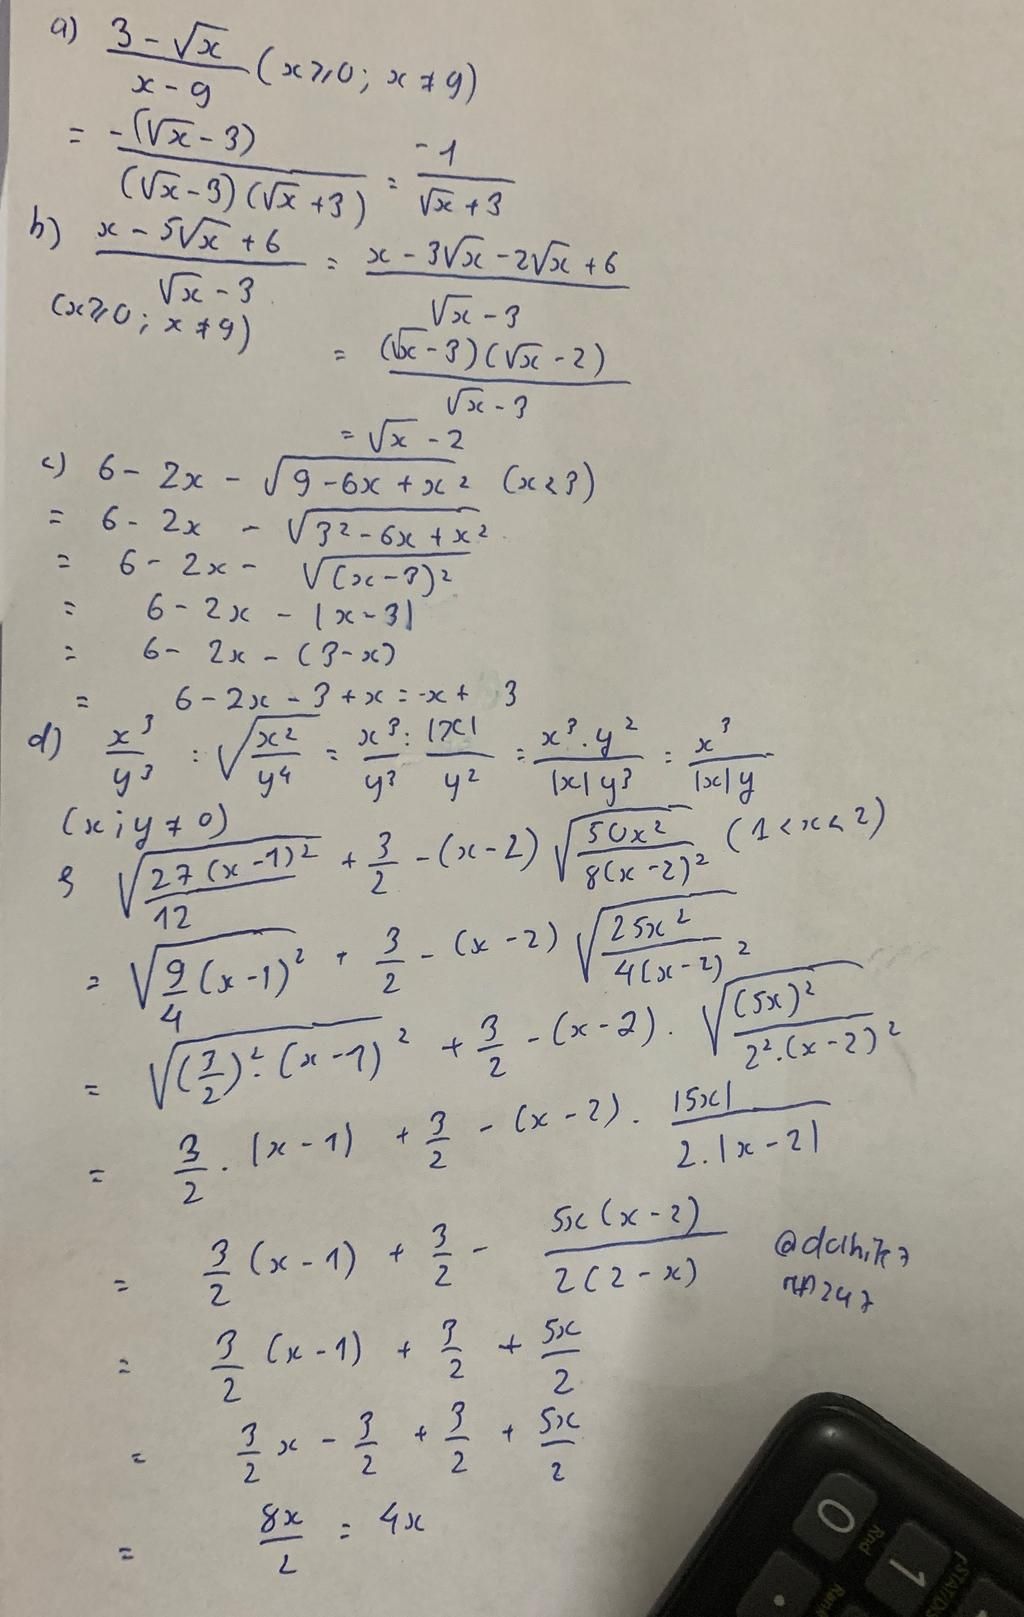 a) (3 - √x)/(x - 9) (x ⩾ 0; x ≠ 9)
= -(√x - 3)/((√x - 3)(√x + 3)) = -1/(√x + 3)
b) (x - 5√x + 6)/(√x - 3) = (x - 3√x - 2√x + 6)/(√x - 3)
(x ⩾ 0; x ≠ 9)
= (√x - 3)(√x - 2)/(√x - 3)
= √x - 2
c) 6 - 2x - √(9 - 6x + x²) (x < 3)
= 6 - 2x - √(3² - 6x + x²)
= 6 - 2x - √((x - 3)²)
= 6 - 2x - |x - 3|
= 6 - 2x - (3 - x)
= 6 - 2x - 3 + x = -x + 3
d) x³/y³ : √(x²/y⁴) = x³/y³ : |x|/y² = x³.y²/(|x|y³) = x³/(|x|y)
(x; y ≠ 0)
√(27(x - 1)²/12) + 3/2 - (x - 2)√(50x²/(8(x - 2)²)) (1 < x < 2)
= √(9/4 (x - 1)²) + 3/2 - (x - 2)√(25x²/(4(x - 2)²))
= √((3/2)².(x - 1)²) + 3/2 - (x - 2).√((5x)²/(2².(x - 2)²))
= 3/2 . (x - 1) + 3/2 - (x - 2). |5x|/(2.|x - 2|)
= 3/2 (x - 1) + 3/2 - 5x(x - 2)/(2(2 - x))
= 3/2 (x - 1) + 3/2 + 5x/2
= 3/2 x - 3/2 + 3/2 + 5x/2
= 8x/2 = 4x
0
Rnd
1